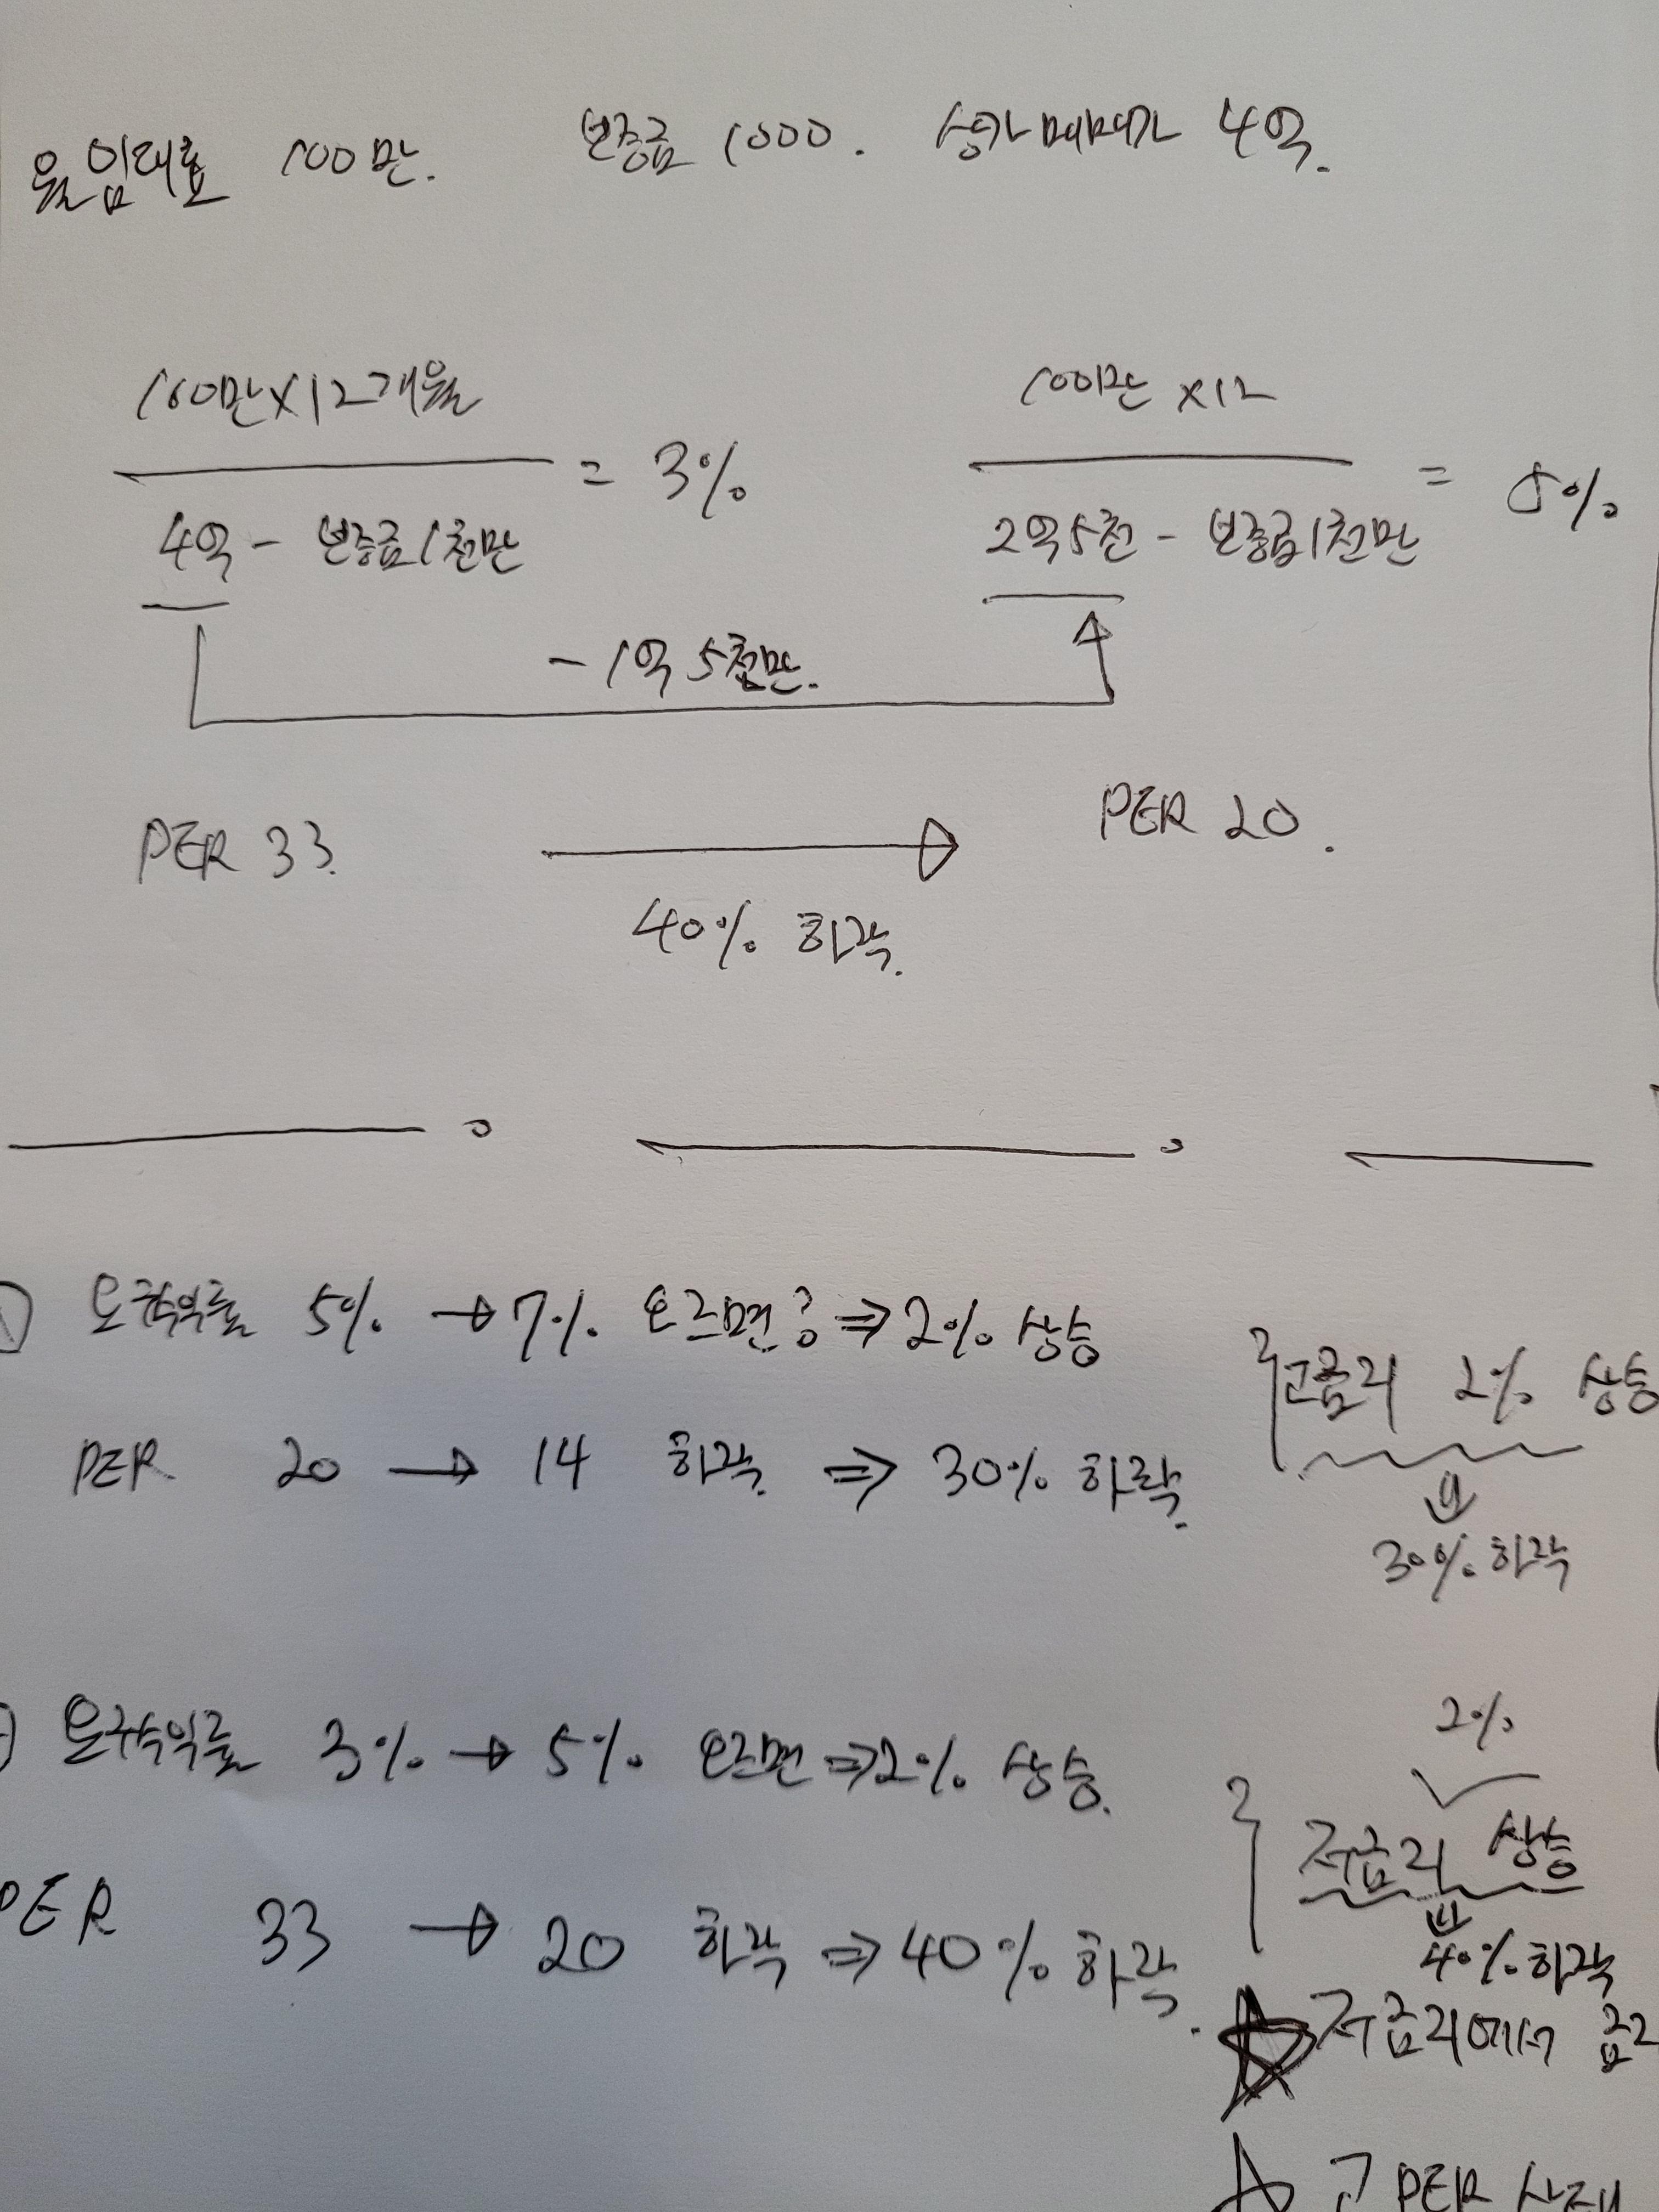 월임대료 100만. 보증금 1000. 상가매매가 4억.
100만×12개월
――――― = 3%
4억 - 보증금1천만
100만 ×12
――――― = 5%
2억5천 - 보증금1천만
- 1억 5천만.
PER 33. → PER 20.
40% 하락.
요구수익률 5% → 7% 오르면? ⇒ 2% 상승
PER 20 → 14 하락. ⇒ 30% 하락.
고금리 2% 상승
⇓
30% 하락
요구수익률 3% → 5% 오르면 ⇒ 2% 상승.
PER 33 → 20 하락 ⇒ 40% 하락.
2%
저금리 상승
⇓
40% 하락
☆ 저금리에서 금리
☆ 고PER 상태